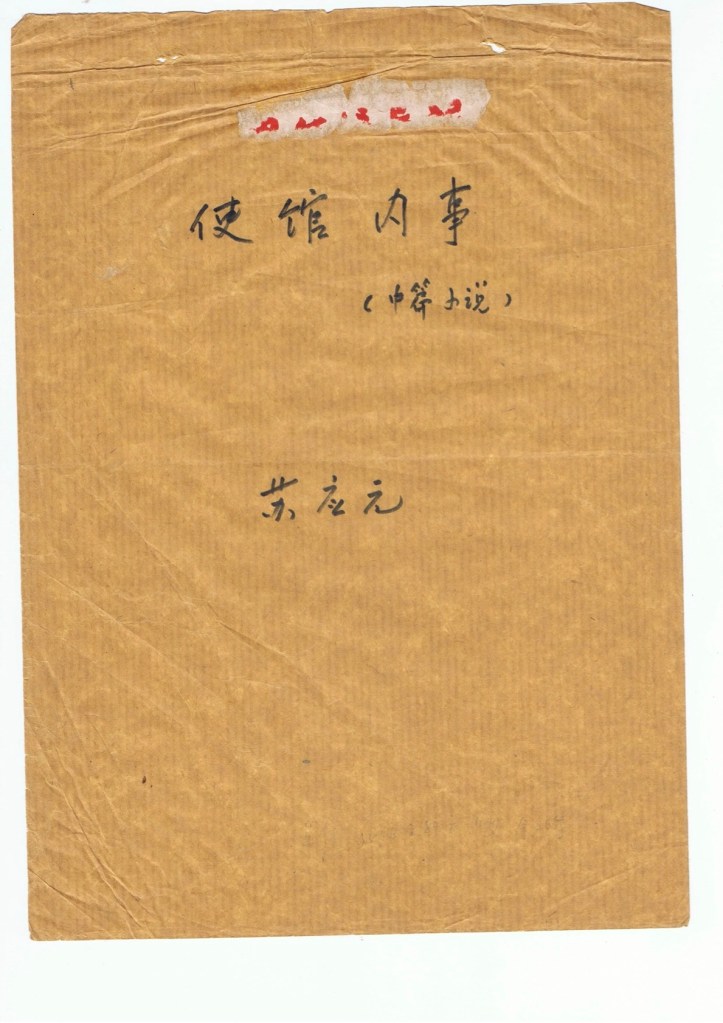 使馆内事
（中篇小说）
苏应元